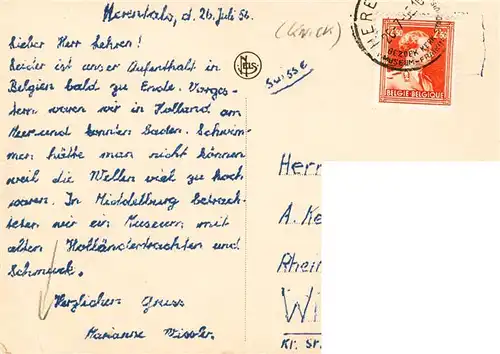 Herentals, d. 26. Juli 56.
Lieber Herr Lehrer!
Leider ist unser Aufenthalt in
Belgien bald zu Ende. Vorges-
tern waren wir in Holland am
Meer und konnten baden. Schwim-
men hätte man nicht können
weil die Wellen viel zu hoch
waren. In Middelburg betrach-
teten wir ein Museum mit
alten Holländertrachten und
Schmuck.
Herzlicher Gruss
Marianne
Suisse
NELS
BELGIE BELGIQUE
HERE
BEZOEK
MUSEUM
Herr
A. Ke
Rhein
W
Kt. St.